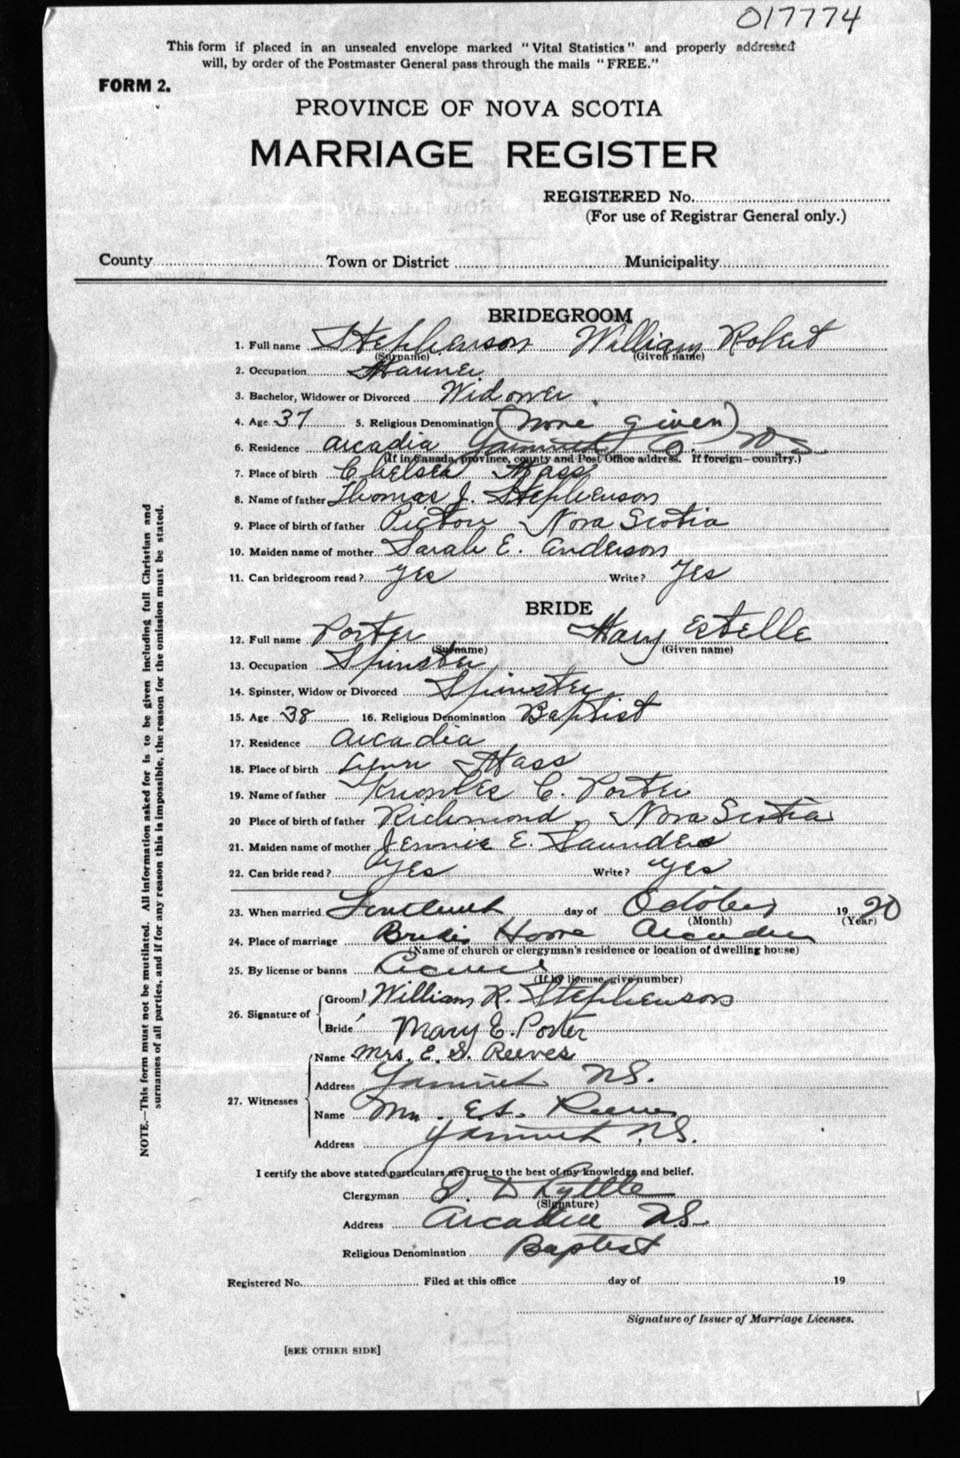 017774
This form if placed in an unsealed envelope marked "Vital Statistics" and properly addressed
will, by order of the Postmaster General pass through the mails "FREE."
FORM 2.
PROVINCE OF NOVA SCOTIA
MARRIAGE REGISTER
REGISTERED No.
(For use of Registrar General only.)
County Town or District Municipality
BRIDEGROOM
1. Full name Stephenson William Robert
(Surname) (Given name)
2. Occupation Mariner
3. Bachelor, Widower or Divorced Widower
4. Age 37 5. Religious Denomination (none given)
6. Residence Arcadia Yarmouth Co. N.S.
(If in Canada, province, county and Post Office address. If foreign—country.)
7. Place of birth Chelsea Mass
8. Name of father Thomas J. Stephenson
9. Place of birth of father Pictou Nova Scotia
10. Maiden name of mother Sarah E. Anderson
11. Can bridegroom read? Yes Write? Yes
BRIDE
12. Full name Porter Mary Estelle
(Surname) (Given name)
13. Occupation Spinster
14. Spinster, Widow or Divorced Spinster
15. Age 38 16. Religious Denomination Baptist
17. Residence Arcadia
18. Place of birth Lynn Mass
19. Name of father Knowles C. Porter
20 Place of birth of father Richmond, Nova Scotia
21. Maiden name of mother Jennie E. Saunders
22. Can bride read? Yes Write? Yes
23. When married day of October 1920
(Month) (Year)
24. Place of marriage Brides Home Arcadia
(Name of church or clergyman's residence or location of dwelling house)
25. By license or banns License
(If by license, give number)
26. Signature of
Groom William R. Stephenson
Bride Mary E. Porter
27. Witnesses
Name Mrs. E. S. Reeves
Address Yarmouth N.S.
Name Mr. E.S. Reeves
Address Yarmouth N.S.
I certify the above stated particulars are true to the best of my knowledge and belief.
Clergyman D Lyttle
(Signature)
Address Arcadia N.S.
Religious Denomination Baptist
Registered No. Filed at this office day of 19
Signature of Issuer of Marriage Licenses.
[SEE OTHER SIDE]
NOTE.—This form must not be mutilated. All information asked for is to be given including full Christian and
surnames of all parties, and if for any reason this is impossible, the reason for the omission must be stated.